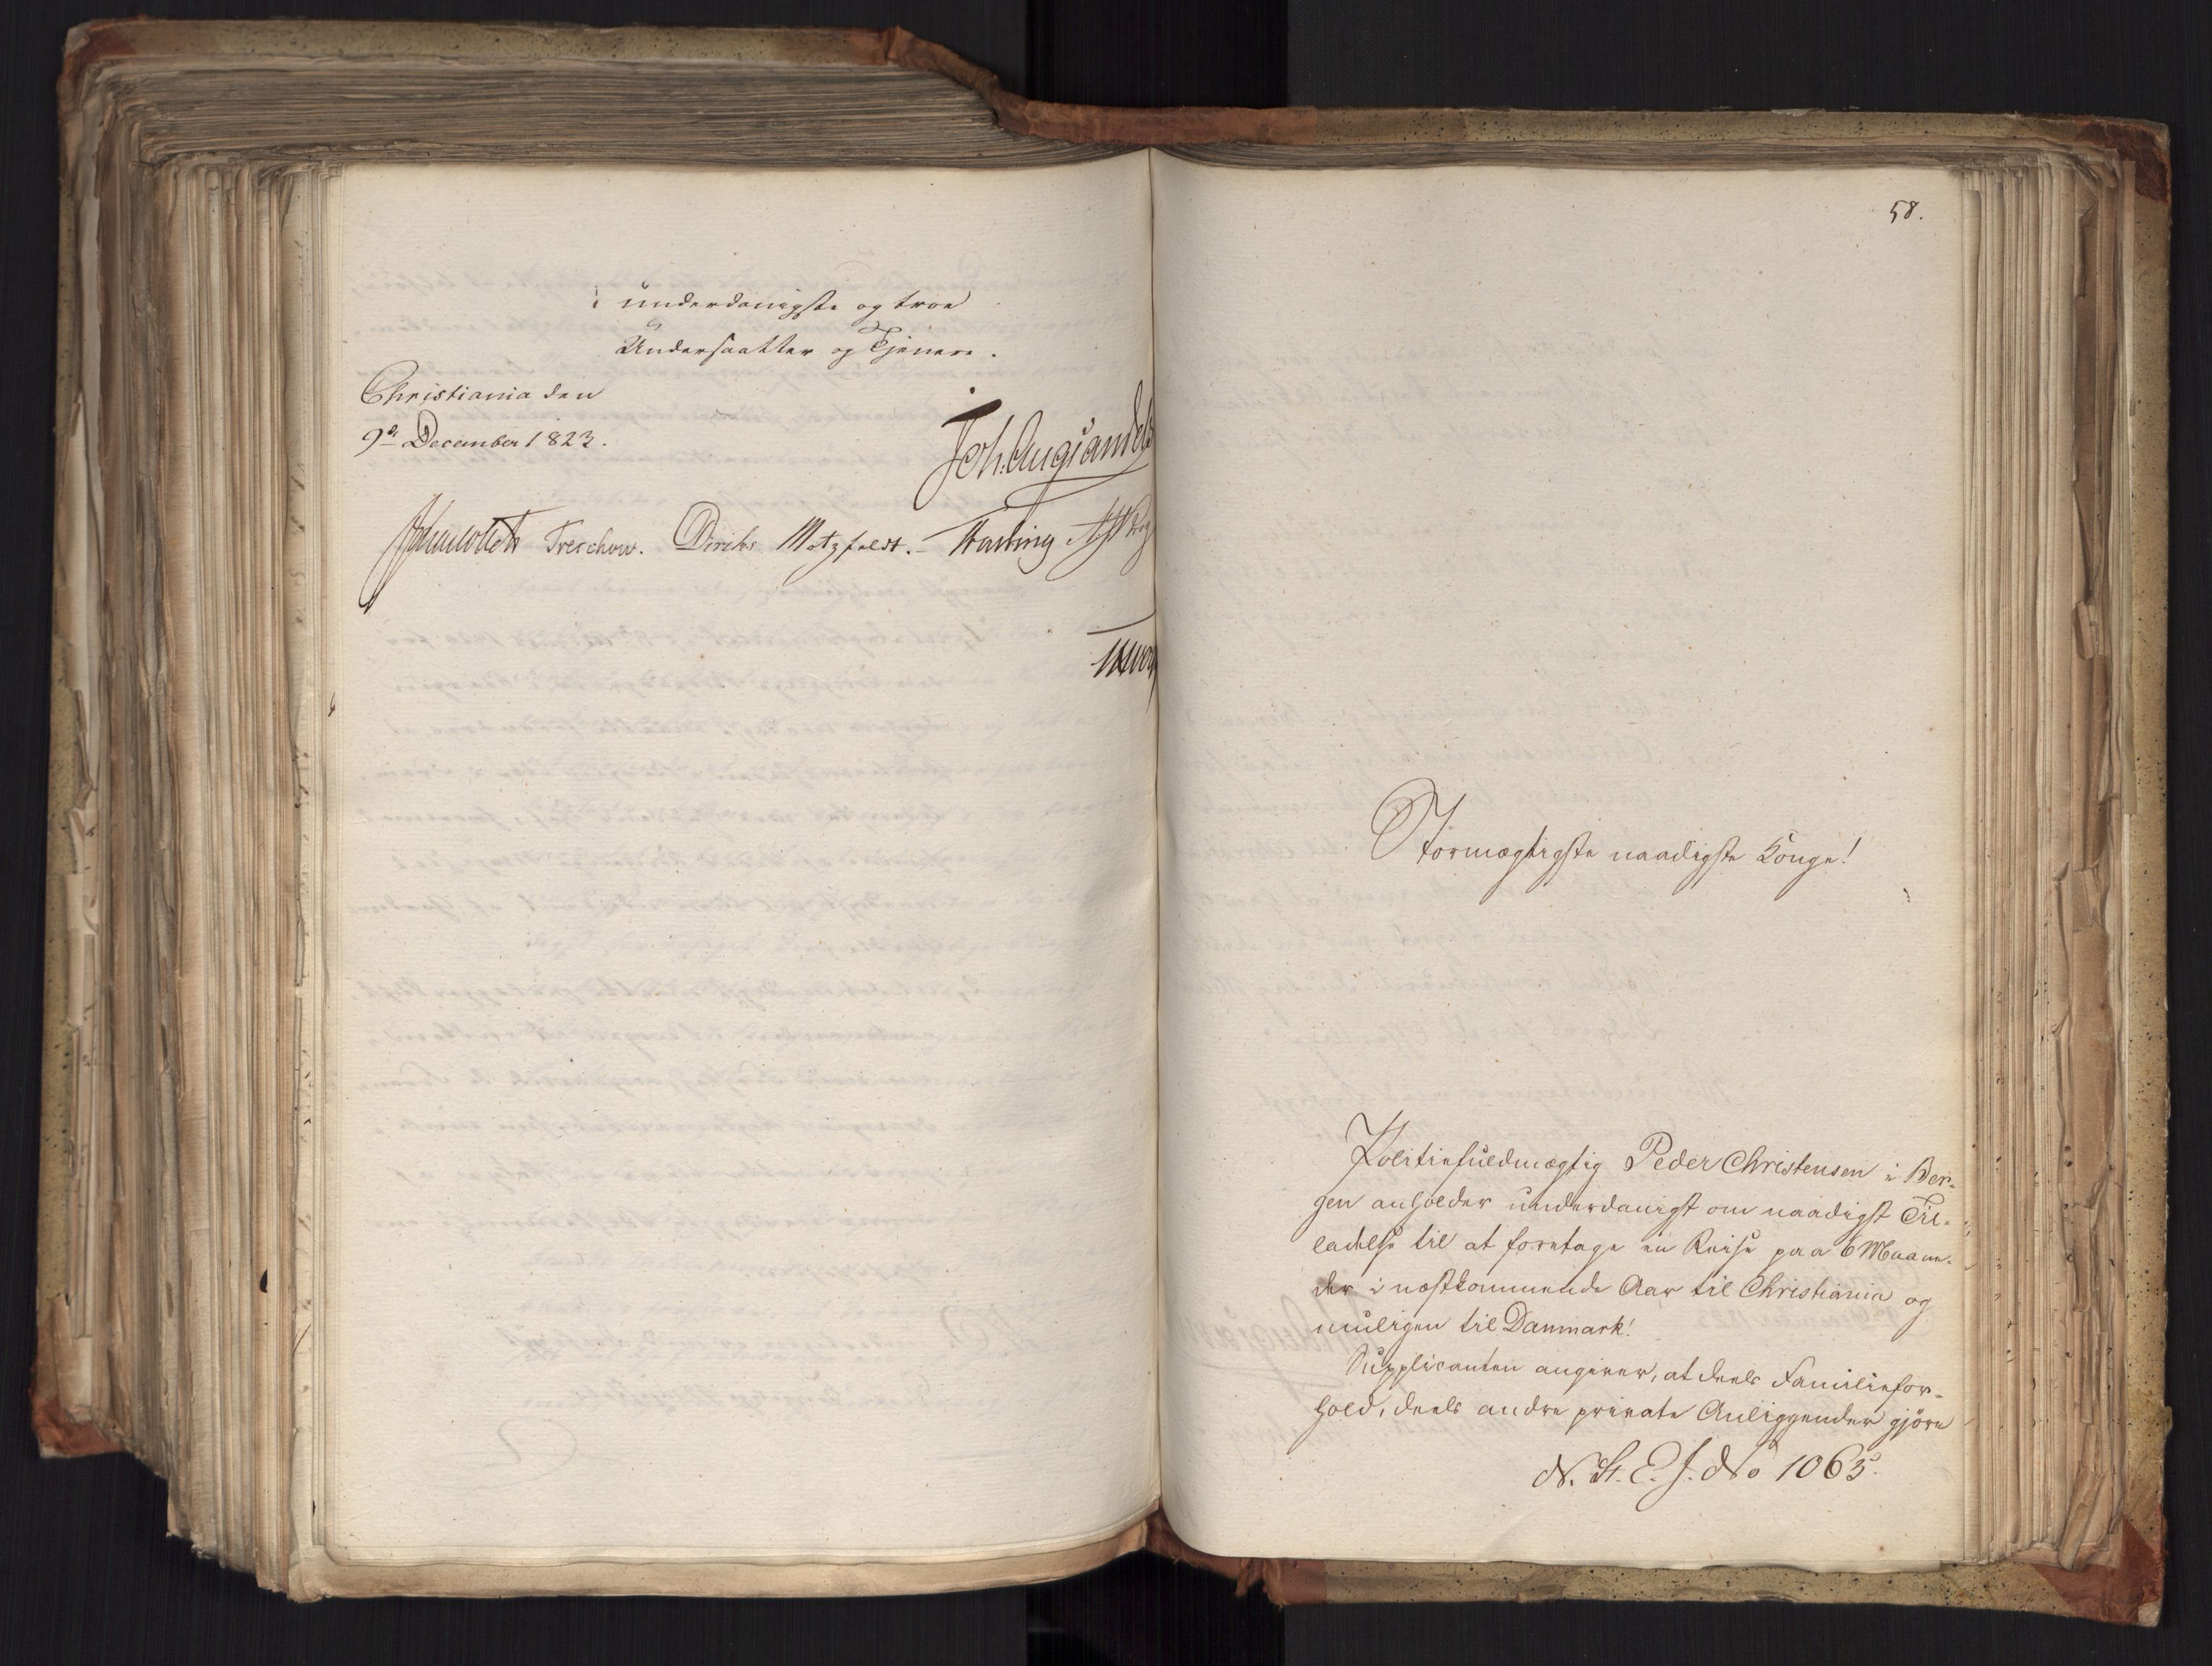 underdanigste og troe
Undersaatter og Tjenere.
Christiania den
9de December 1823.
Joh. Aug. Sandels
JCollett Treschow. Diriks Motzfeldt. Fasting
58.
Stormægtigste naadigste Konge!
Politiefuldmægtig Peder Christensen i Ber-
gen anholder underdanigst om naadigst Til-
ladelse til at foretage en Reise paa 6 Maane-
der i næstkommende Aar til Christiania og
muligen til Danmark!
Supplicanten angiver, at deels Familiefor-
hold, deels andre private Anliggender gjöre
N. St. E. J. No 1065.